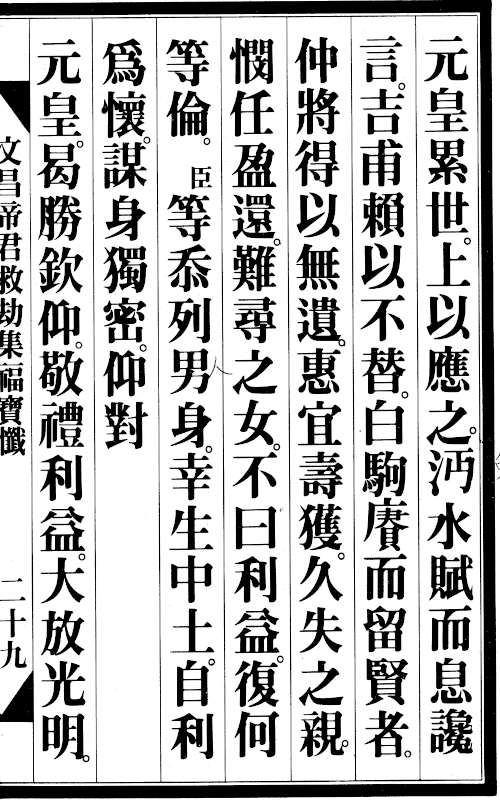 元皇累世。上以應之。沔水賦而息讒
言。吉甫賴以不替。白駒賡而留賢者。
仲將得以無遺。惠宜壽獲。久失之親。
憫任盈還。難尋之女。不曰利益。復何
等倫。臣等忝列男身。幸生中土。自利
爲懷。謀身獨密。仰對
元皇。曷勝欽仰。敬禮利益。大放光明。
文昌帝君救劫集福寶懺 二十九